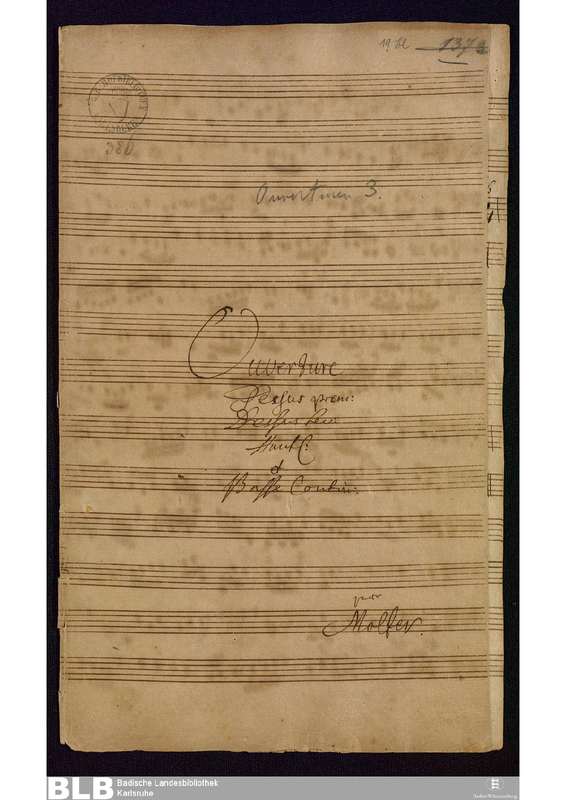 19 bl 137
386
Ouverturen 3.
Ouverture
Dessus prem:
Dessus sec:
Haut C:
et
Basse Contin:
par
Molter.
BLB Badische Landesbibliothek
Karlsruhe
Baden-Württemberg